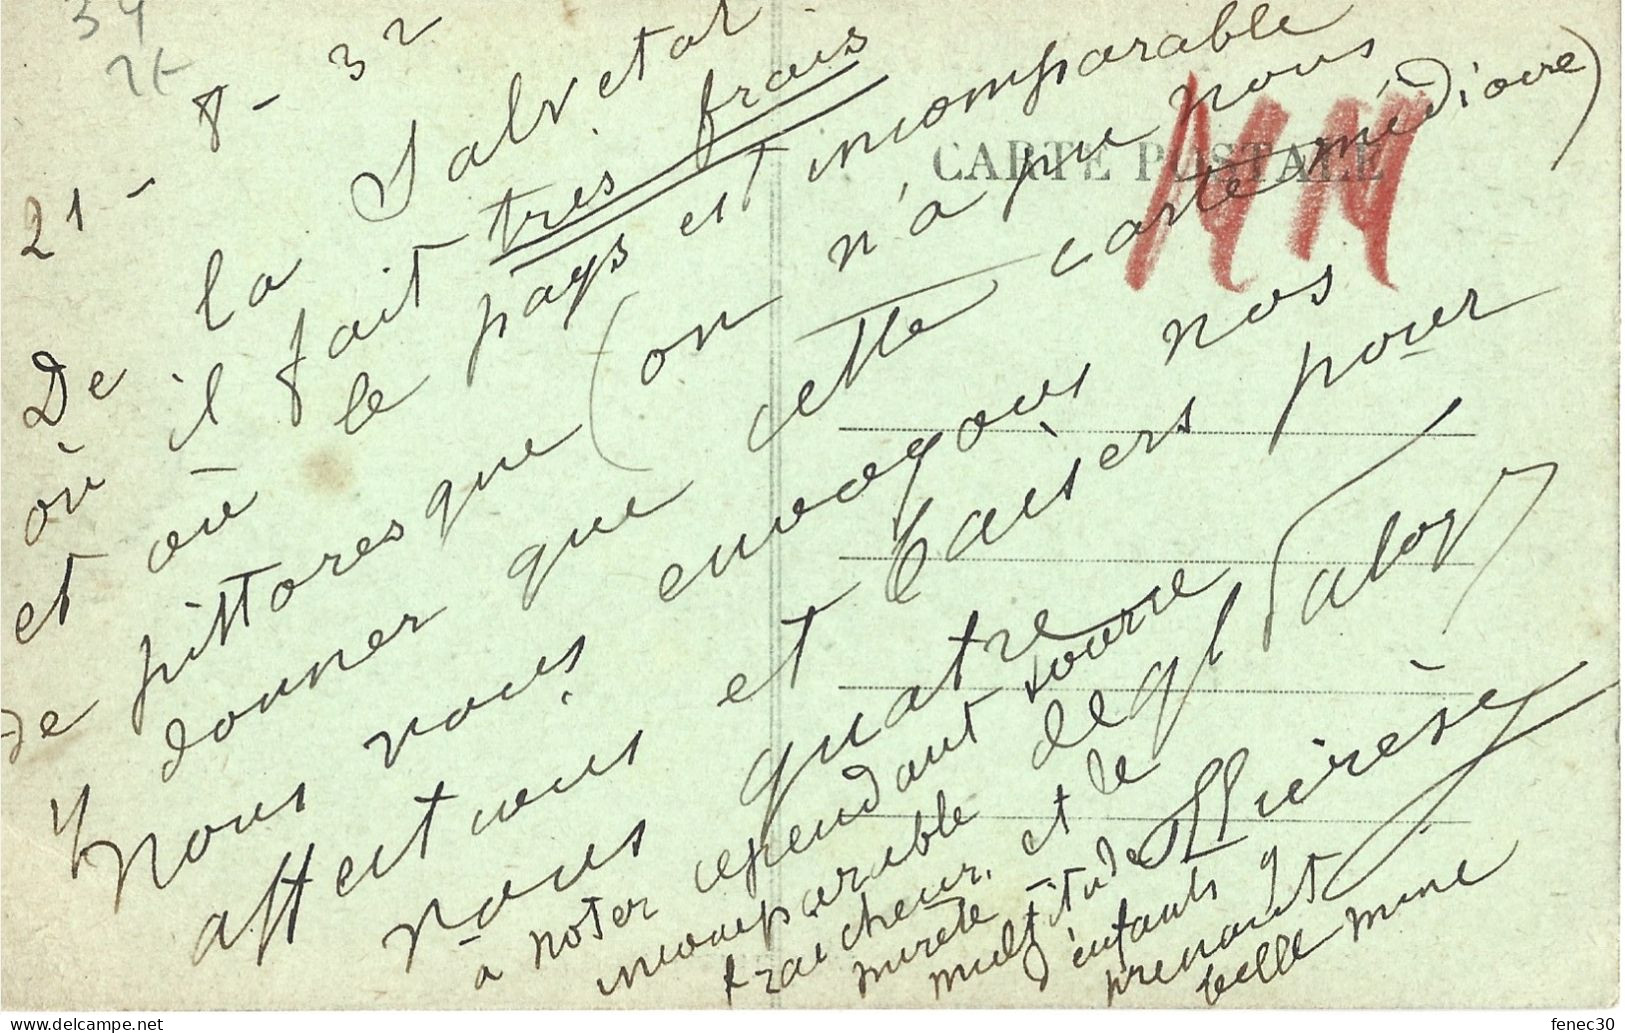 34
21 - 8 - 32
De la Salvetat
où il fait très frais
et où le pays est incomparable
de pittoresque (on n'a pu nous
donner que cette carte médiocre)
Nous vous envoyons nos
affectueux et baisers pour
vous quatre
à noter cependant source
incomparable de
fraicheur, et le
multitude
d'enfants y
prenant
belle mine
Thérèse
CARTE POSTALE
delcampe.net
fenec30